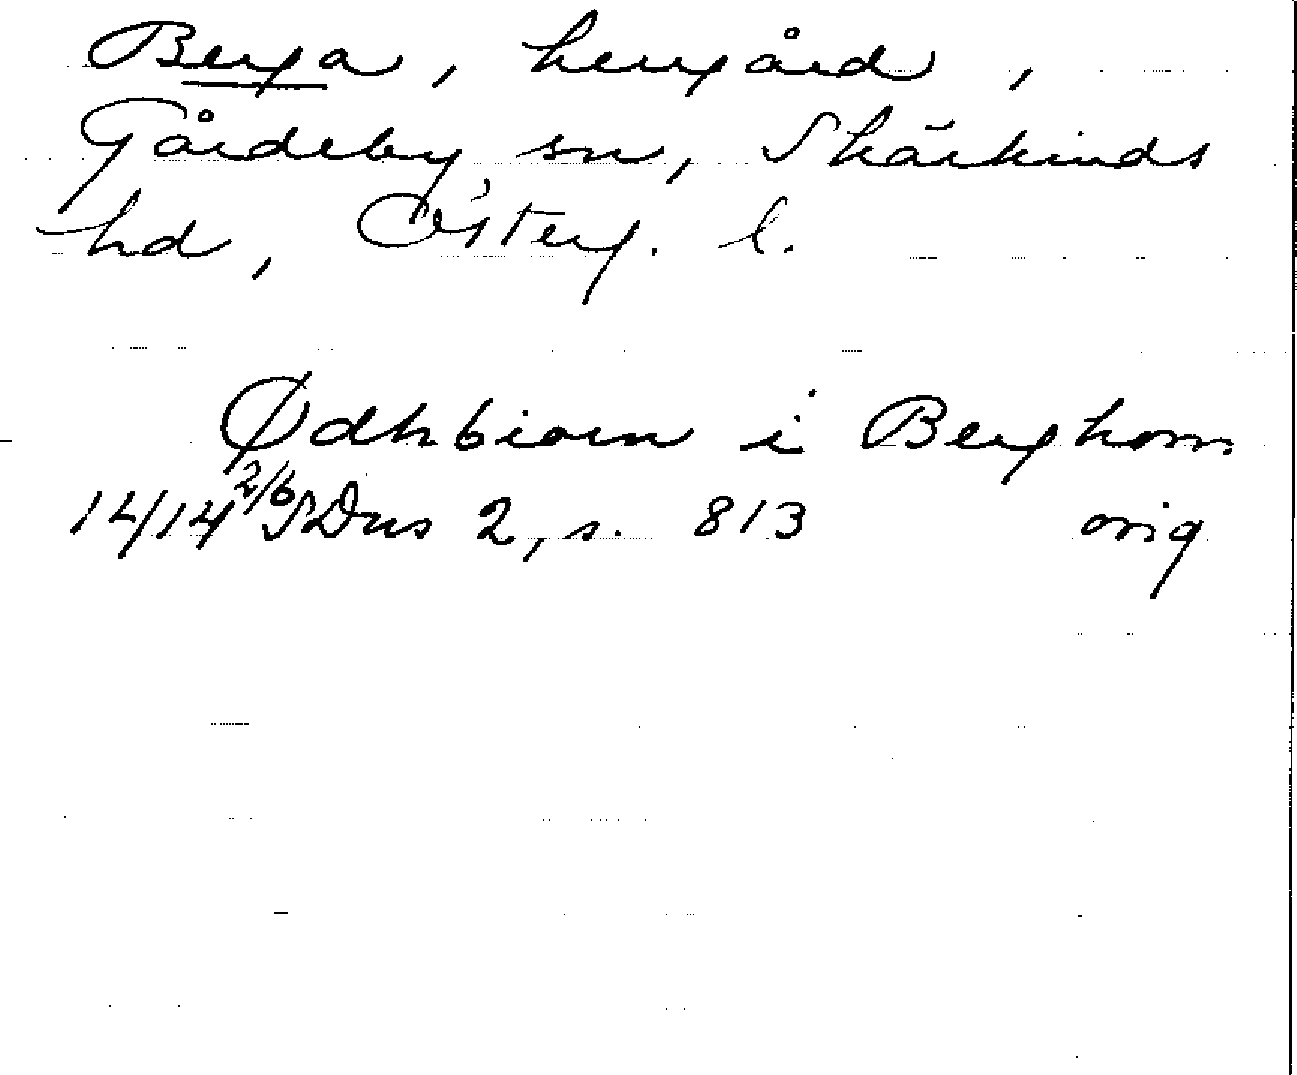 Berga, herrgård,
Gårdeby sn, Skärkinds
hd, Österg. l.
Ødhbiorn i Berghom
1414 2/6 SDns 2, s. 813 orig